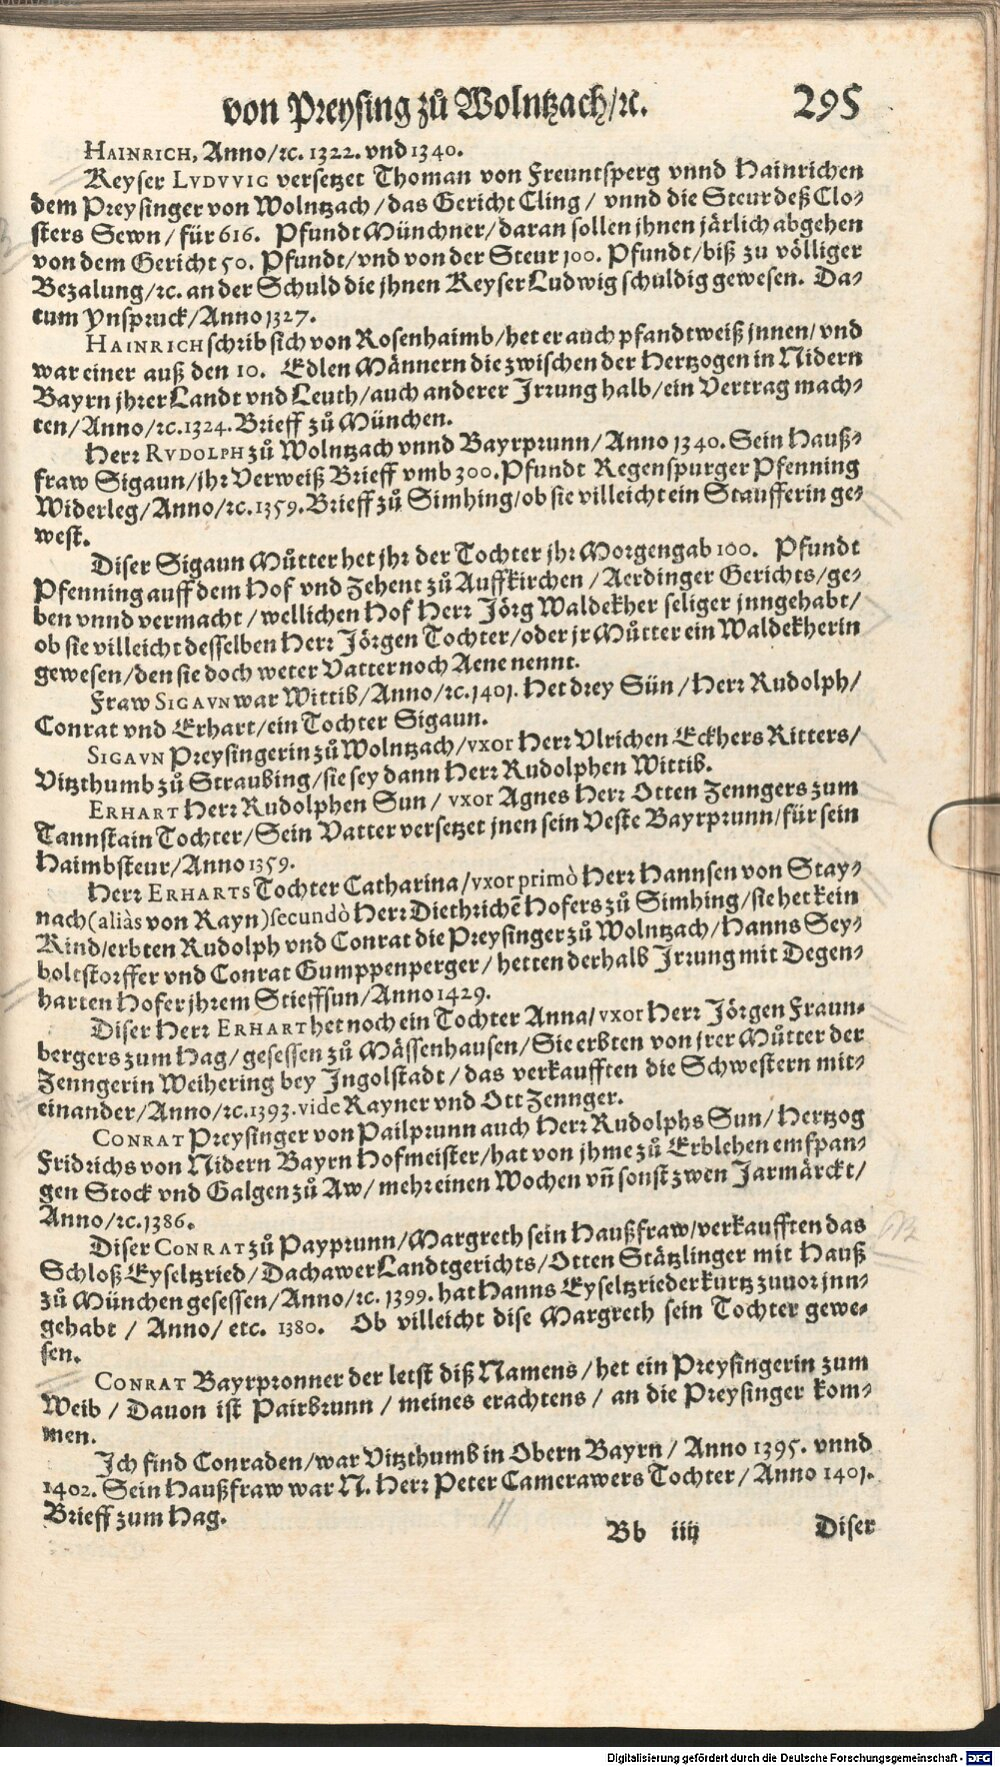 von Preysing zů Wolntzach/ꝛc. 295
HAINRICH, Anno/ꝛc. 1322. vnd 1340.
Keyser LVDVVIG versetzet Thoman von Freuntsperg vnnd Hainrichen
dem Preysinger von Wolntzach/das Gericht Cling/ vnnd die Steur deß Clo-
sters Sewn/für 616. Pfundt Münchner/daran sollen jhnen järlich abgehen
von dem Gericht 50. Pfundt/vnd von der Steur 100. Pfundt/biß zu völliger
Bezalung/ꝛc. an der Schuld die jhnen Keyser Ludwig schuldig gewesen. Da-
tum Ynspruck/Anno 1327.
HAINRICH schrib sich von Rosenhaimb/het er auch pfandtweiß jnnen/vnd
war einer auß den 10. Edlen Männern die zwischen der Hertzogen in Nidern
Bayrn jhrer Landt vnd Leuth/auch anderer Irrung halb/ein Vertrag mach-
ten/Anno/ꝛc.1324. Brieff zů München.
Herr RVDOLPH zů Wolntzach vnnd Bayrprunn/Anno 1340. Sein Hauß-
fraw Sigaun/jhr Verweiß Brieff vmb 300. Pfundt Regenspurger Pfenning
Widerleg/Anno/ꝛc.1359. Brieff zů Simhing/ob sie villeicht ein Staufferin ge-
west.
Diser Sigaun Můtter het jhr der Tochter jhr Morgengab 100. Pfundt
Pfenning auff dem Hof vnd Zehent zů Auffkirchen/Aerdinger Gerichts/ge-
ben vnnd vermacht/wellichen Hof Herr Jörg Waldekher seliger jnngehabt/
ob sie villeicht desselben Herr Jörgen Tochter/oder jr Můtter ein Waldekherin
gewesen/den sie doch weter Vatter noch Aene nennt.
Fraw SIGAVN war Wittib/Anno/ꝛc.1401. Het drey Sün/Herr Rudolph/
Conrat vnd Erhart/ein Tochter Sigaun.
SIGAVN Preysingerin zů Wolntzach/vxor Herr Vlrichen Eckhers Ritters/
Vitzthumb zů Straubing/sie sey dann Herr Rudolphen Wittib.
ERHART Herr Rudolphen Sun/ vxor Agnes Herr Otten Zenngers zum
Tannstain Tochter/Sein Vatter versetzet jnen sein Veste Bayrprunn/für sein
Haimbsteur/Anno 1359.
Herr ERHARTS Tochter Catharina/vxor primò Herr Hannsen von Stay-
nach (aliàs von Rayn) secundò Herr Diethrichē Hofers zů Simhing/sie het kein
Kind/erbten Rudolph vnd Conrat die Preysinger zů Wolntzach/Hanns Sey-
boltstorffer vnd Conrat Gumppenperger/hetten derhalb Irrung mit Degen-
harten Hofer jhrem Stieffsun/Anno 1429.
Diser Herr ERHART het noch ein Tochter Anna/vxor Herr Jörgen Fraun-
bergers zum Hag/gesessen zů Mässenhausen/Sie erbten von jrer Můtter der
Zenngerin Weihering bey Ingolstadt/das verkaufften die Schwestern mit-
einander/Anno/ꝛc.1393. vide Rayner vnd Ott Zennger.
CONRAT Preysinger von Pailprunn auch Herr Rudolphs Sun/Hertzog
Fridrichs von Nidern Bayrn Hofmeister/hat von jhme zů Erblehen emfpan-
gen Stock vnd Galgen zů Aw/mehr einen Wochen vn̄ sonst zwen Jarmärckt/
Anno/ꝛc.1386.
Diser CONRAT zů Payprunn/Margreth sein Haußfraw/verkaufften das
Schloß Eyseltzried/Dachawer Landtgerichts/Otten Stätzlinger mit Hauß
zů München gesessen/Anno/ꝛc. 1399. hat Hanns Eyseltzrieder kurtz zuuor jnn-
gehabt / Anno/ etc. 1380. Ob villeicht dise Margreth sein Tochter gewe-
sen.
CONRAT Bayrpronner der letst diß Namens/het ein Preysingerin zum
Weib / Dauon ist Pairbrunn / meines erachtens / an die Preysinger kom-
men.
Ich find Conraden/war Vitzthumb in Obern Bayrn/ Anno 1395. vnnd
1402. Sein Haußfraw war N. Herr Peter Camerawers Tochter/Anno 1401.
Brieff zum Hag.
Bb iiij Diser
Digitalisierung gefördert durch die Deutsche Forschungsgemeinschaft - DFG